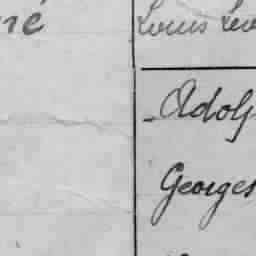 né
Louis Leo
Adolp
Georges